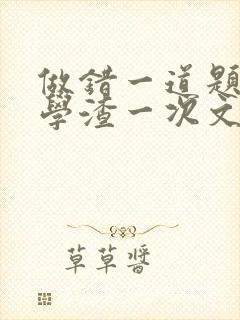 做錯一道題
學渣一次文
草草醬